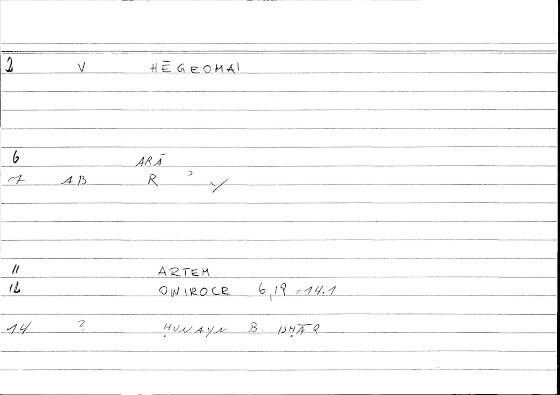 2 V HĒGEOMAI
6 ARĀ
7 AB R ʾ Y
11 ARTEM
12 ONIROCR 6,19 = 14.1
14 ? ḤUNAYN B ISḤĀQ